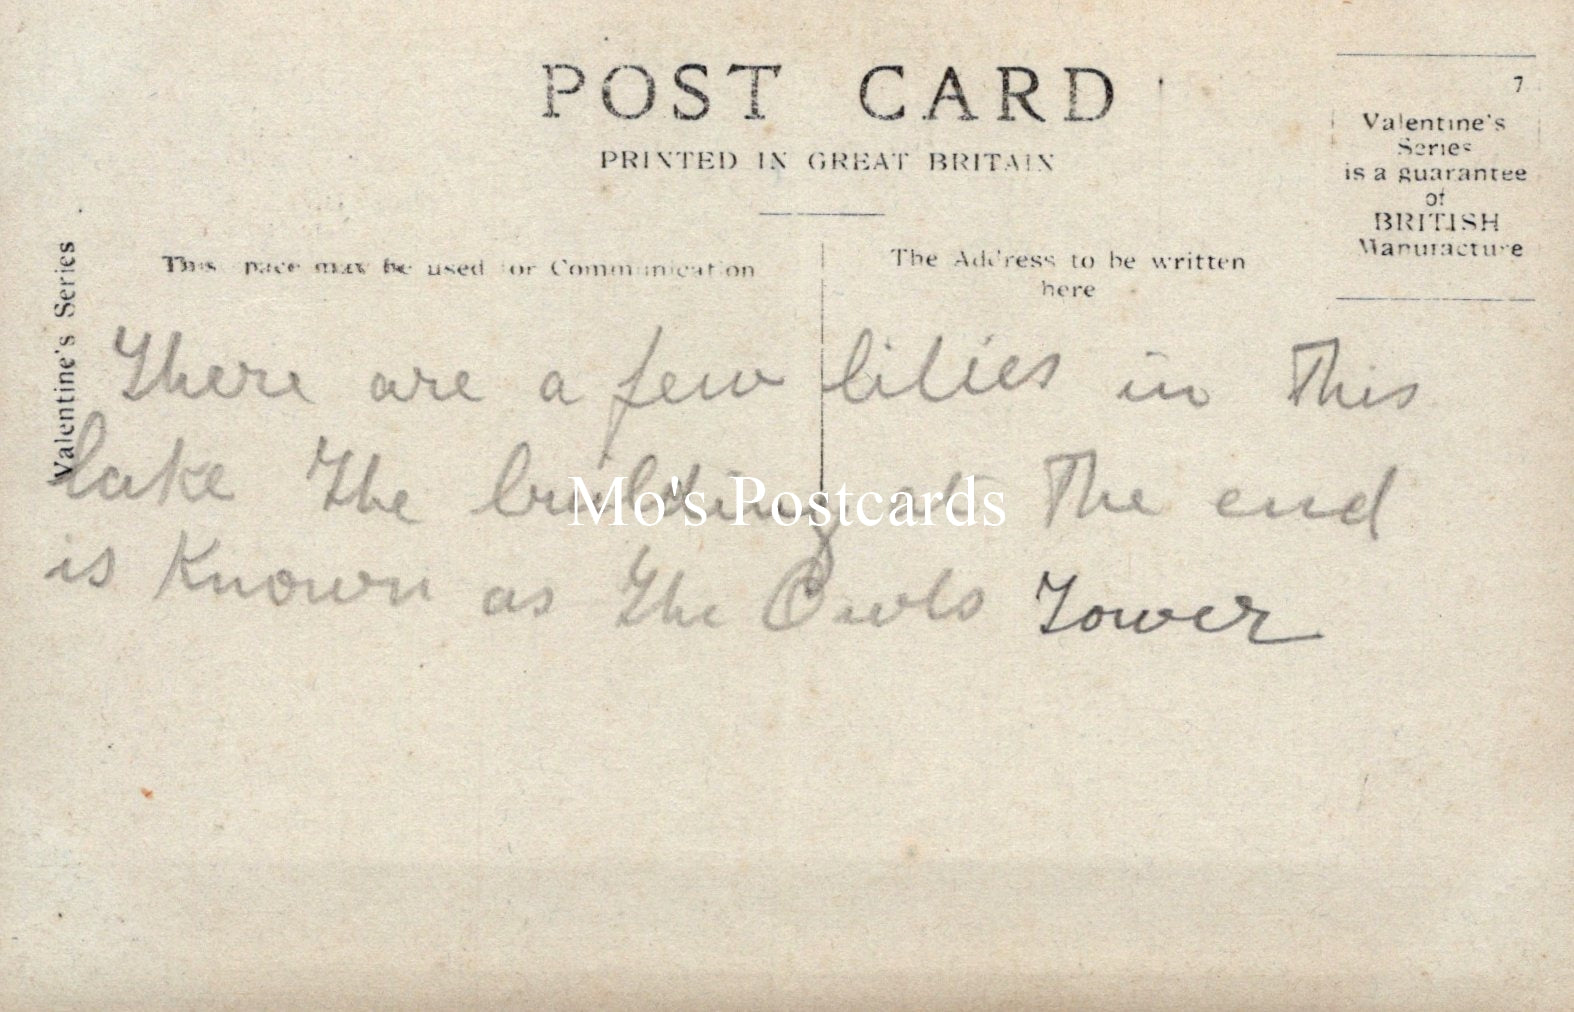 POST CARD
PRINTED IN GREAT BRITAIN
7
Valentine's
Series
is a guarantee
of
BRITISH
Manufacture
Valentine's Series
This space may be used for Communication
The Address to be written
here
There are a few lilies in This
lake The building at The end
is Known as The Owls Tower
Mo's Postcards